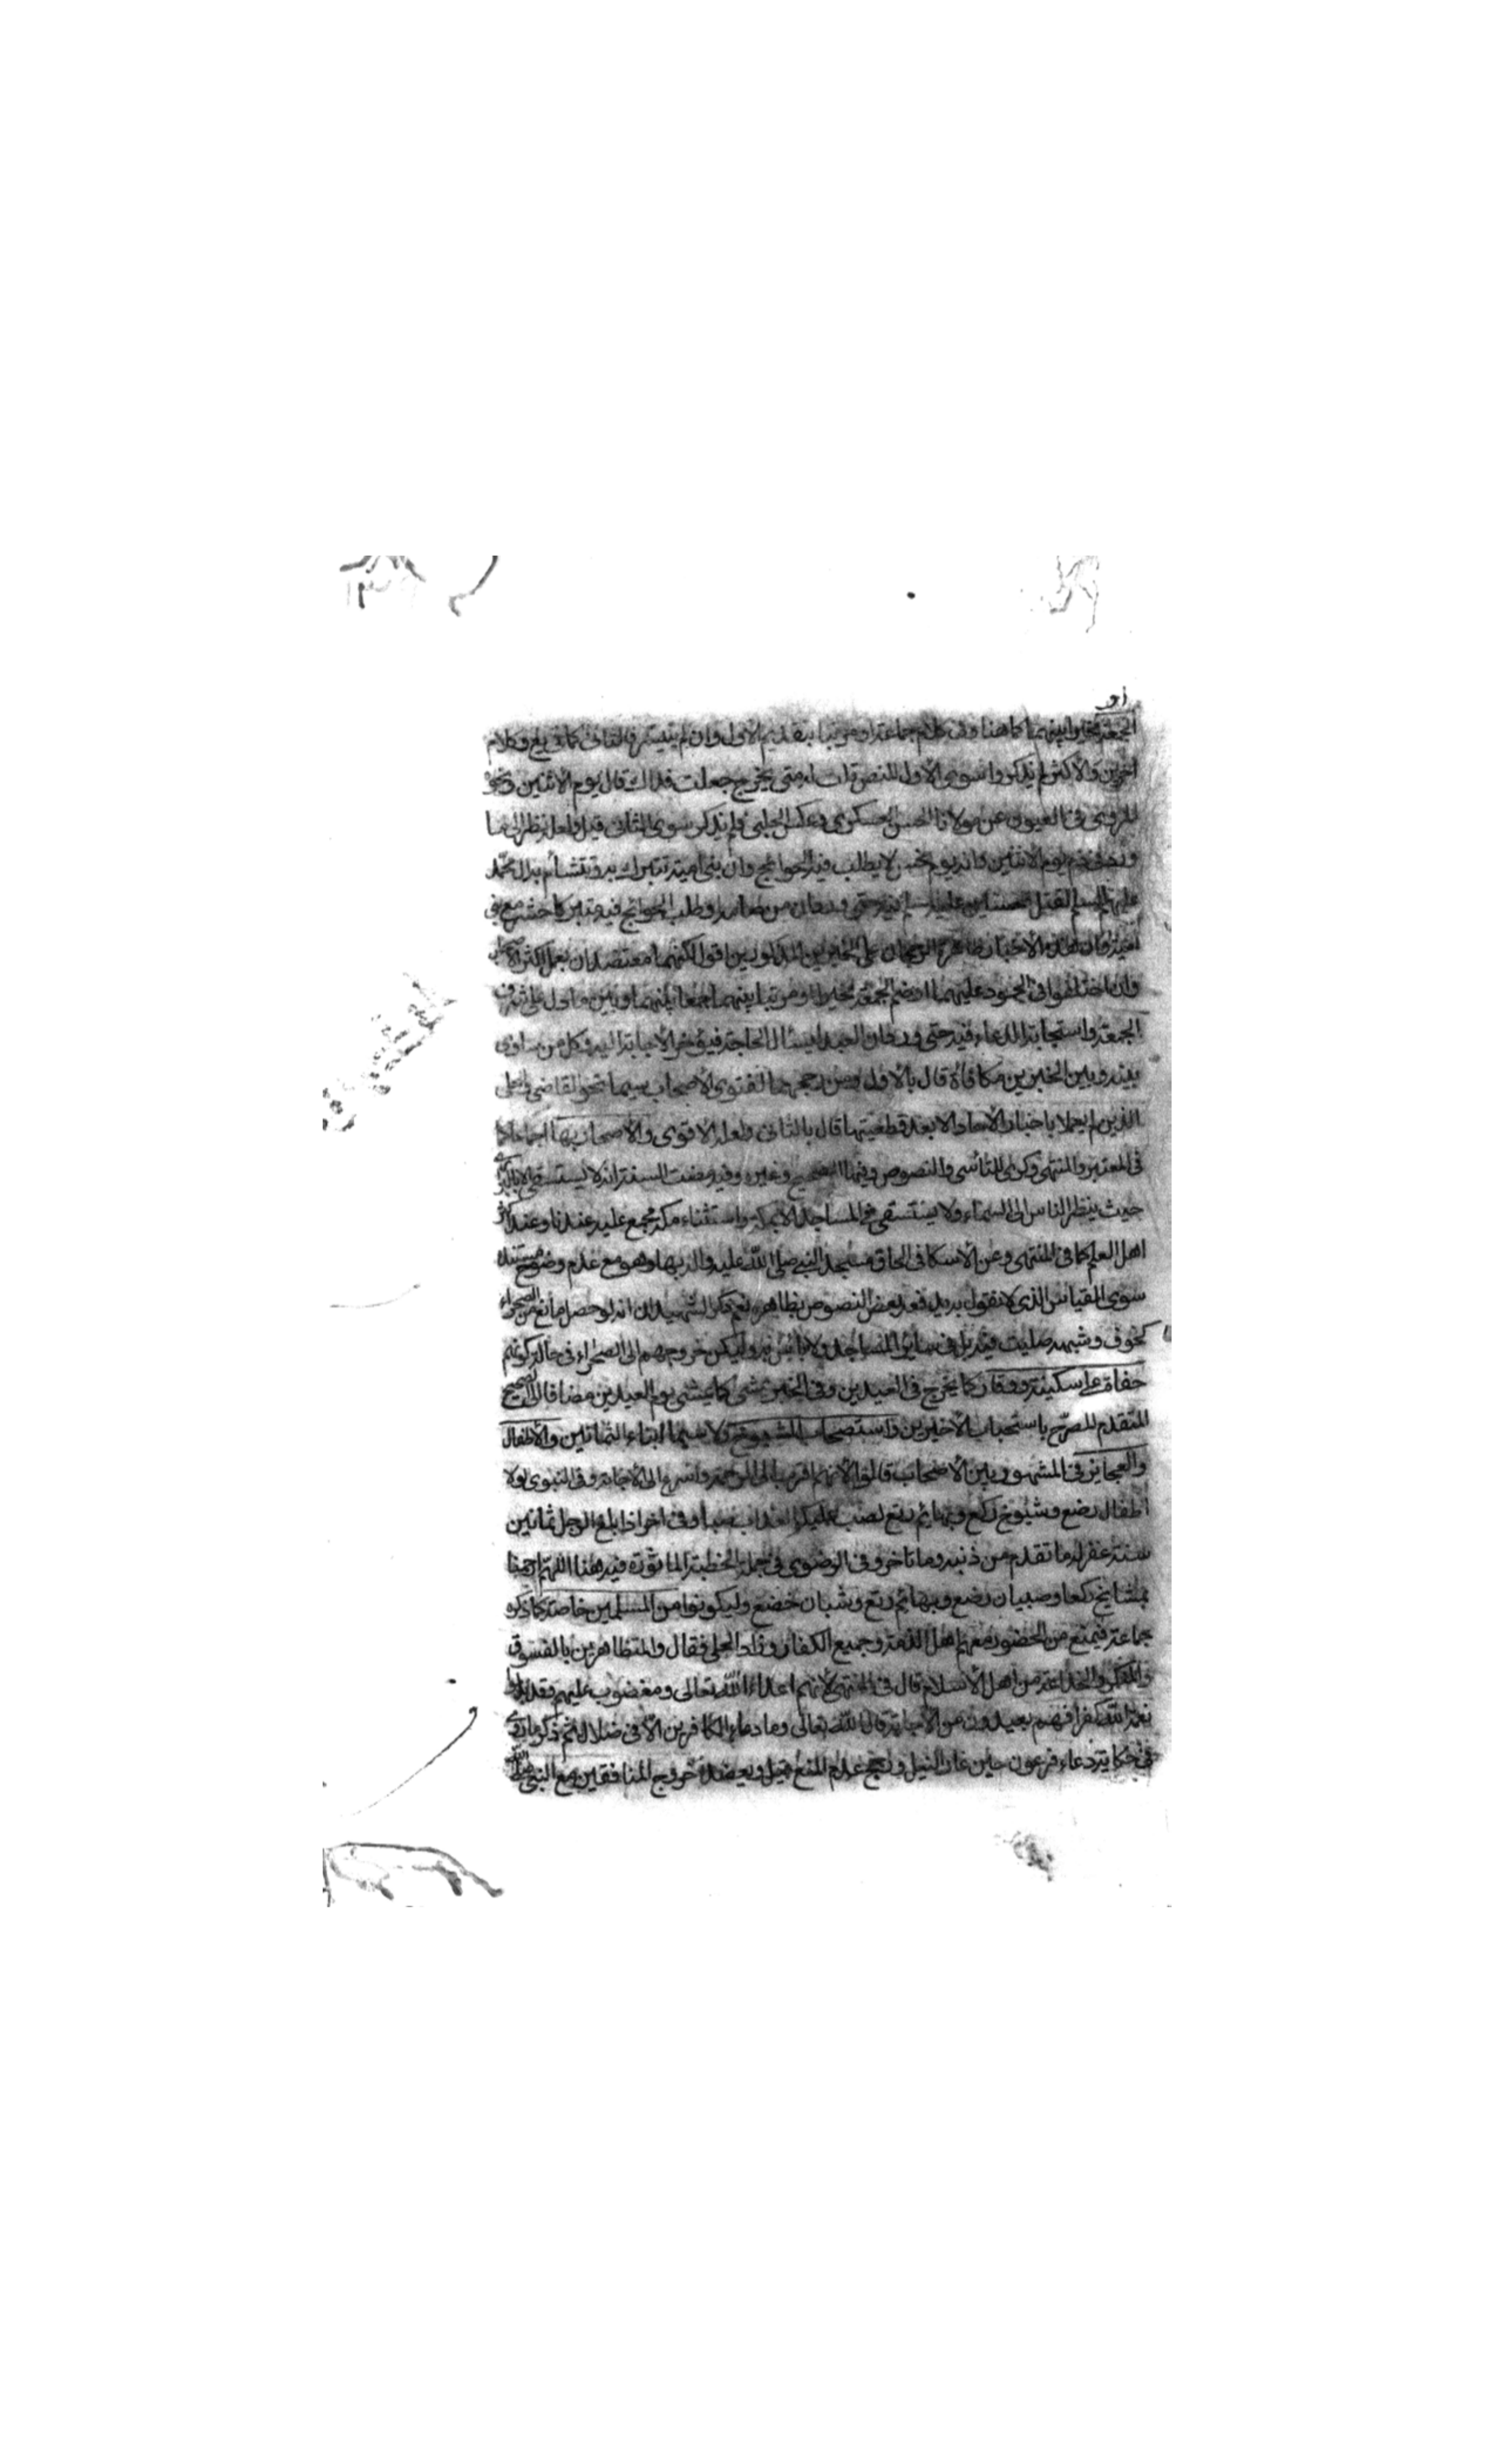 أو
الجمعة مخيرا بينهما كما هنا وفى كلام جماعة او مرتبا بتقديم الاول وان لم يتيسر فالثانى كما فى يع وكلام
اخرين والاكثر لم يذكروا سوى الاول للنص قلت له متى يخرج جعلت فداك قال يوم الاثنين ونحوه
المروى فى العيون عن مولانا الحسن العسكرى وعكس الحلبى فلم يذكر سوى الثانى قيل ولعله نظر الى ما
ورد فى ذم يوم الاثنين وانه يوم نحس لا يطلب فيه الحوائج وان بنى امية تتبرك به وتتشأم به ال محمد
عليهم السلم لقتل الحسين عليه السلم فيه حتى ورد ان من صامه او طلب الحوائج فيه متبركا حشر مع بنى
امية وان هذه الاخبار ظاهرة الرجحان على الخبرين المذكورين اقول لكنهما معتضدان بعمل اكثر الاصحاب
وان اختلفوا فى الجمود عليهما او ضم الجمعة مخيرا او مرتبا بينهما جمعا بينهما وبين ما دل على شرف
الجمعة واستجابة الدعاء فيه حتى ورد ان العبد ليسأل الحاجة فيؤخر الاجابة اليه فكل من ساوى
بينه وبين الخبرين مكافاة قال بالاول ومن رجحهما لفتوى الاصحاب سيما نحو القاضى والحلى
الذين لم يعملا باخبار الاحاد الا بعد قطعيتها قال بالثانى ولعله الاقوى والاصحار بها اجماعا كما
فى المعتبر والمنتهى وكرى للتأسى والنصوص وفيها الصحيح وغيره وفيه مضت السنة انه لا يستسقى الا بالبرارى
حيث ينظر الناس الى السماء ولا يستسقى فى المساجد الا بمكة واستثناء مكة مجمع عليه عندنا وعند اكثر
اهل العلم كما فى المنتهى وعن الاسكافى الحاق مسجد النبى صلى الله عليه واله بها وهو مع عدم وضوح مستنده
سوى القياس الذى لا نقول به يدفعه بعض النصوص بظاهره نعم ذكر الشهيدان انه لو حصل مانع من الصحراء
كخوف وشبهه صليت فيه بل فى سائر المساجد ولا بأس به وليكن خروجهم الى الصحراء فى حالة كونهم
حفاة على سكينة ووقار كما يخرج فى العيدين وفى الخبر يمشى كما يمشى يوم العيدين مضافا الى الصحيح
المتقدم المصرح باستحباب الاخيرين واستصحاب الشيوخ ولا سيما ابناء الثمانين والاطفال
والعجايز فى المشهور بين الاصحاب قالوا لانهم اقرب الى الرحمة واسرع الى الاجابة وفى النبوى لولا
اطفال رضع وشيوخ ركع وبهائم رتع لصب عليكم العذاب صبا وفى اخر اذا بلغ الرجل ثمانين
سنة غفر له ما تقدم من ذنبه وما تاخر وفى الرضوى فى جملة الخطبة الماثورة فيه هنا اللهم ارحمنا
بمشايخ ركعا وصبيان رضع وبهائم رتع وشبان خضع وليكونوا من المسلمين خاصة كما ذكره
جماعة فيمنع من الحضور معهم اهل الذمة وجميع الكفار وزاد الحلى فقال والمتظاهرين بالفسوق
والمنكر والخداعة من اهل الاسلام قال فى المنتهى لانهم اعداء الله تعالى ومغضوب عليهم وقد بدلوا
نعمة الله كفرا فهم بعيدون من الاجابة قال الله تعالى وما دعاء الكافرين الا فى ضلال ثم ذكر ما روى
فى حكاية دعاء فرعون حين غار النيل ورجح عدم المنع قيل ويعضده خروج المنافقين مع النبى صلى الله